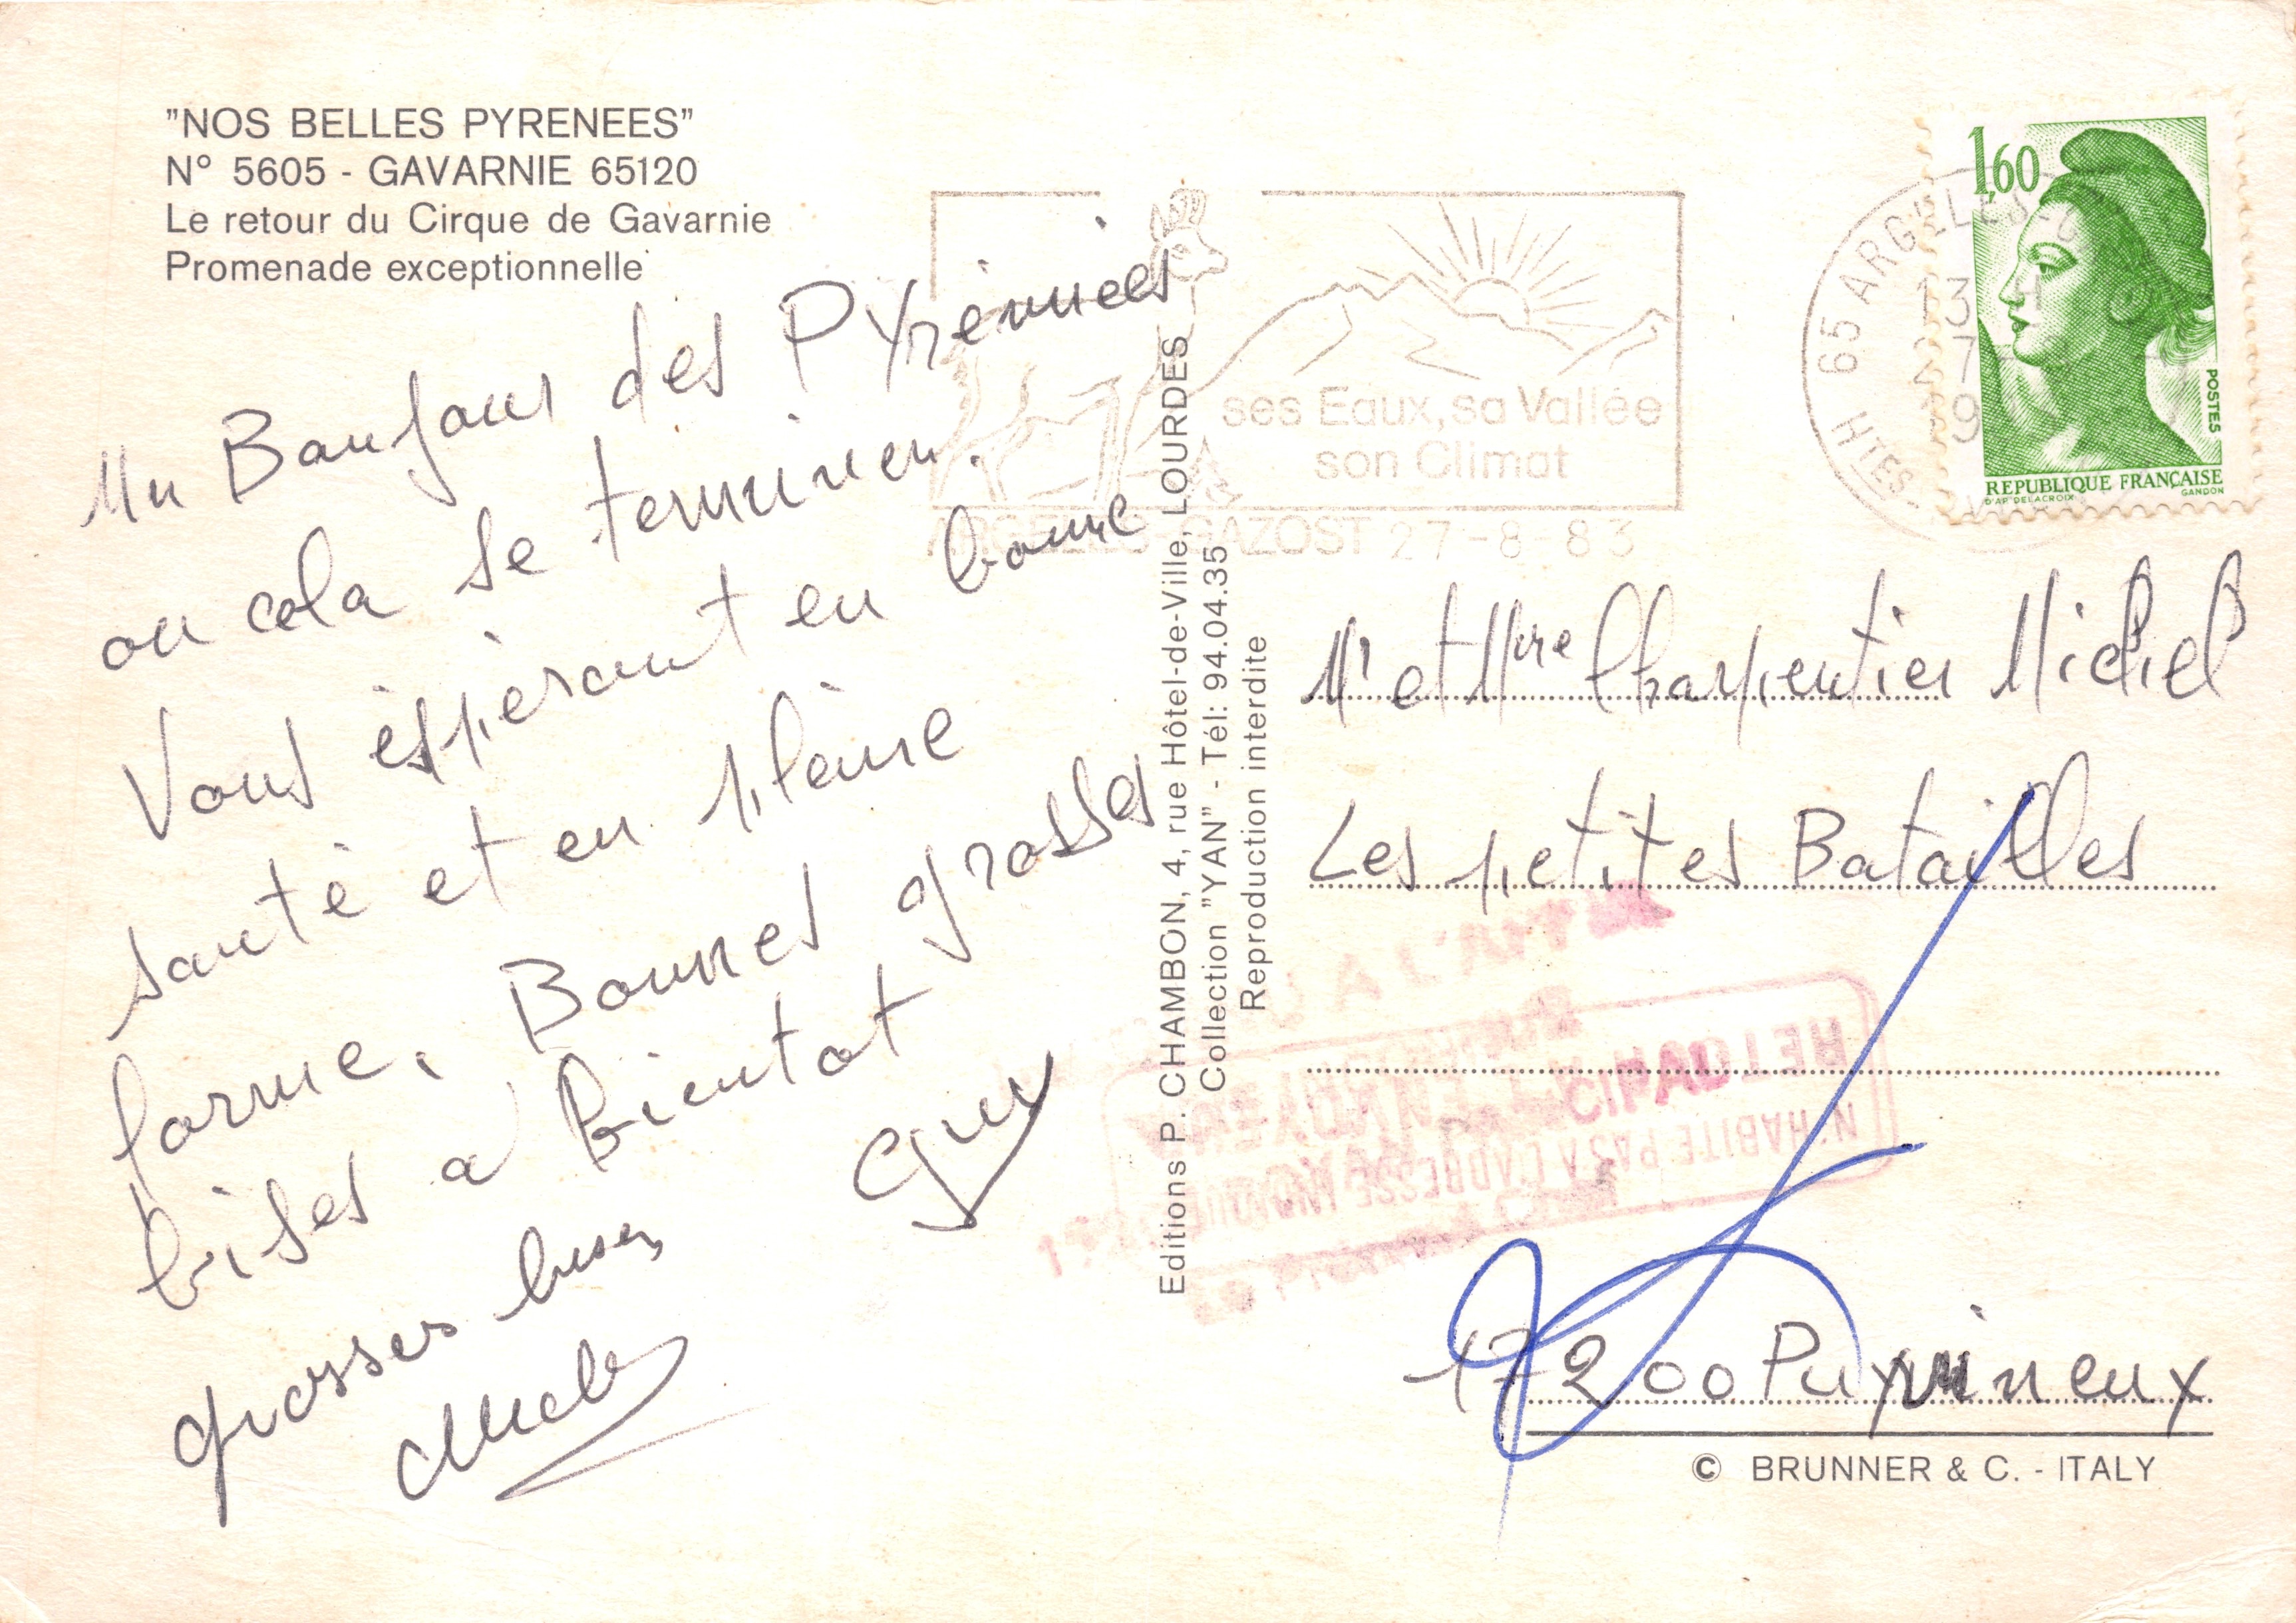 "NOS BELLES PYRENEES"
N° 5605 - GAVARNIE 65120
Le retour du Cirque de Gavarnie
Promenade exceptionnelle
Un Bonjour des Pyrénnées
ou cela se terminer.
Vous éspérant en bonne
santé et en pleine
forme. Bonnes grosses
bises a bientot
Guy
grosses bises
Editions P. CHAMBON, 4, rue Hôtel-de-Ville, LOURDES
Collection "YAN" - Tél: 94.04.35
Reproduction interdite
ses Eaux, sa Vallée
son Climat
ARGELES-GAZOST 27-8-83
65 ARGELES-G
13 H
HTES
1,60
POSTES
REPUBLIQUE FRANÇAISE
D'AP. DELACROIX
GANDON
Mr et Mme Charpentier Michel
Les petites Batailles
RETOUR A L'ENVOYEUR
N'HABITE PAS A L'ADRESSE INDIQUEE
CIPAL
17200 Puyvineux
© BRUNNER & C. - ITALY